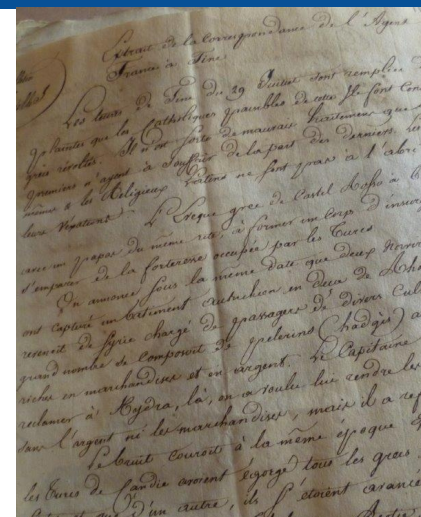 Extrait de la Correspondance de l'Agent
France à Tine
Les lettres de Tine du 29 Juillet sont remplies
plaintes que les Catholiques paisibles de cette Isle font
grecs révoltés. Il n'est sorte de mauvais traitemens que
premiers n'ayent à souffrir de la part des derniers. Les
même & les Religieux ne sont pas à l'abri
leurs vexations. L'Evêque grec de Castel
avec un papas du même rite, à former un Corps d'insur
s'emparer de la forteresse occupée par les Turcs
On annonce sous la même date que deux
ont capturé un bâtiment autrichien en deça de
revenoit de Syrie chargé de passagers de divers
grand nombre se composoit de pelerins (hadgis)
riche en marchandises et en argent. Le Capitaine
reclamer à Hydra, là, on a voulu lui rendre les
sans l'argent ni les marchandises, mais il a
Le bruit couroit à la même époque
les Turcs de Candie avoient égorgé tous les grecs
d'un autre, ils s'étoient